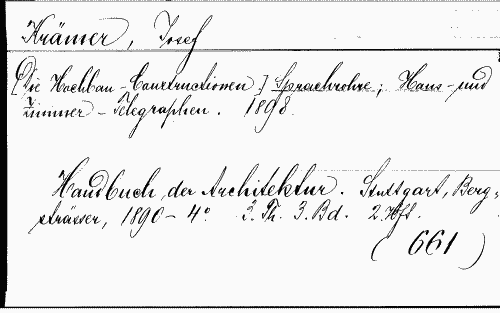 Krämer, Josef
[Die Hochbau-Constructionen.] Sprachrohre; Haus- und
Zimmer-Telegraphen. 1898.
Handbuch der Architektur. Stuttgart, Berg-
strässer, 1890- 4° 3. Th. 3. Bd. 2. Hft.
(661)